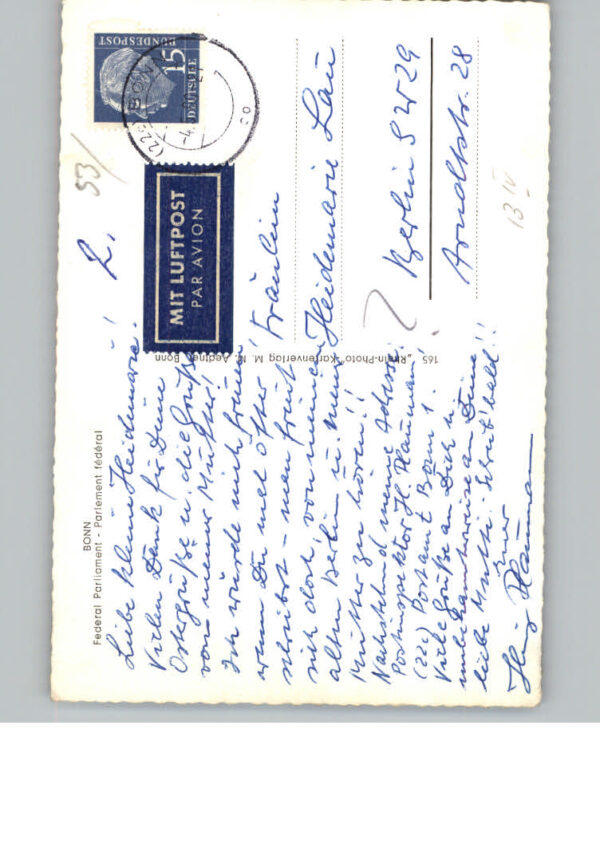 BONN
Federal Parliament - Parlement fédéral
Liebe kleine Heidemarie!
Vielen Dank für Deine
Ostergrüße u. die Grüße
von meiner Mutter!
Ich würde mich freuen
wenn Du mal öfter
schreibst - man freut
sich doch, von meinem
alten Berlin u. meiner
Mutter zu hören!!
Nachstehend meine Adresse:
Postinspektor H. Haumann
(22c) Postamt Bonn 1.
Viele Grüße an Dich u.
unbekannterweise an Deine
liebe Mutti. Schreib' bald!!
Euer
Heinz Haumann
165 „Rhein-Photo" Kartenverlag Bonn
2.
53/
15
DEUTSCHE
BUNDESPOST
BONN
MIT LUFTPOST
PAR AVION
Fräulein
Heidemarie Lau
Berlin SW 29
Arndtstr. 28
13 IV